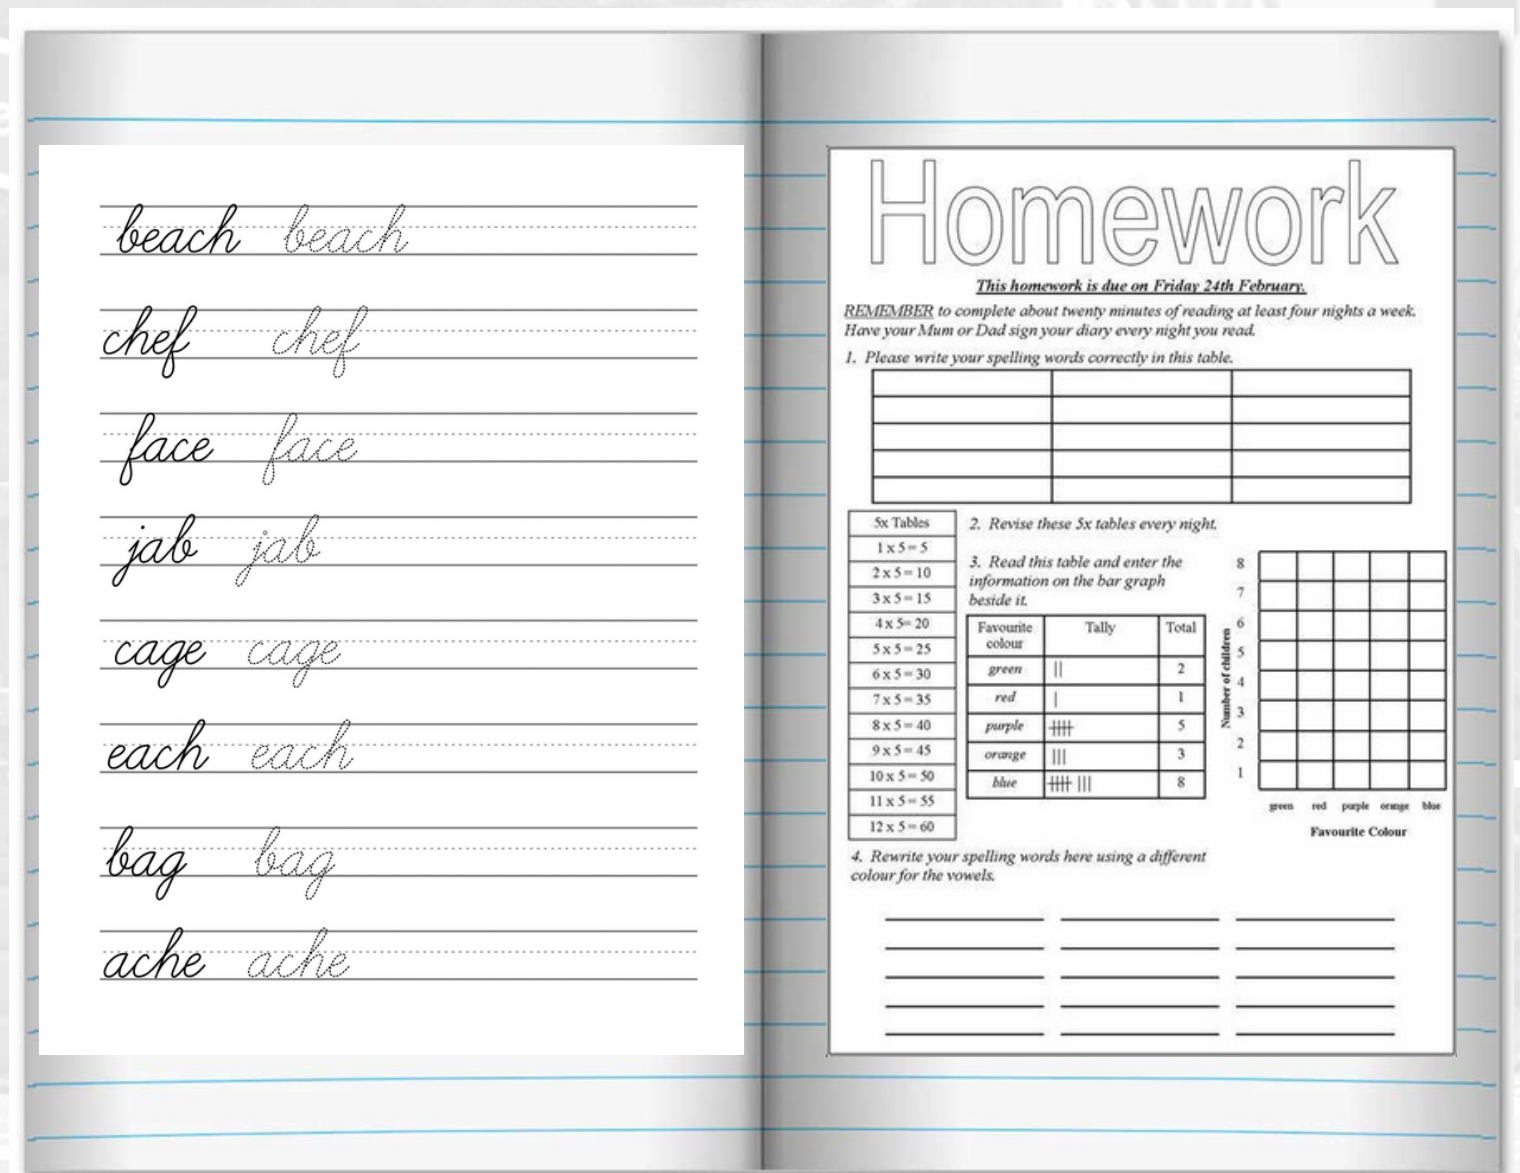 beach beach
chef chef
face face
jab jab
cage cage
each each
bag bag
ache ache
Homework
This homework is due on Friday 24th February.
REMEMBER to complete about twenty minutes of reading at least four nights a week.
Have your Mum or Dad sign your diary every night you read.
1. Please write your spelling words correctly in this table.
5x Tables
1 x 5 = 5
2 x 5 = 10
3 x 5 = 15
4 x 5= 20
5 x 5 = 25
6 x 5 = 30
7 x 5 = 35
8 x 5 = 40
9 x 5 = 45
10 x 5 = 50
11 x 5 = 55
12 x 5 = 60
2. Revise these 5x tables every night.
3. Read this table and enter the
information on the bar graph
beside it.
Favourite colour Tally Total
green || 2
red | 1
purple 5
orange ||| 3
blue 8
Number of children
8
7
6
5
4
3
2
1
green red purple orange blue
Favourite Colour
4. Rewrite your spelling words here using a different
colour for the vowels.